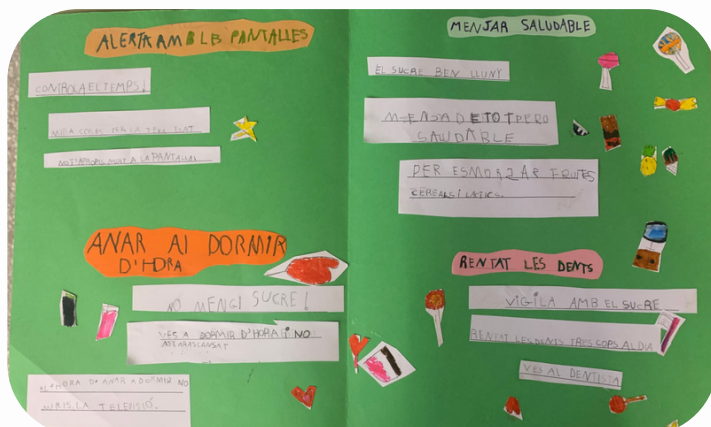 ALERTA AMB LES PANTALLES
CONTROLA EL TEMPS!
NO T'APROPIS MOLT A LA PANTALLA
ANAR AI DORMIR
D'HORA
NO MENGI SUCRE!
VES A DORMIR D'HORA I NO
ESTARAS CANSAT
HORA D'ANAR A DORMIR NO
MIRIS LA TELEVISIÓ.
MENJAR SALUDABLE
EL SUCRE BEN LLUNY
MENJA DE TOT PERO
SAUDARLE
PER ESMORZAR FRUTES
CEREALS I LATICS.
RENTAT LES DENTS
VIGILA AMB EL SUCRE
RENTAT LES DENTS TRES COPS AL DIA
VES AL DENTISTA